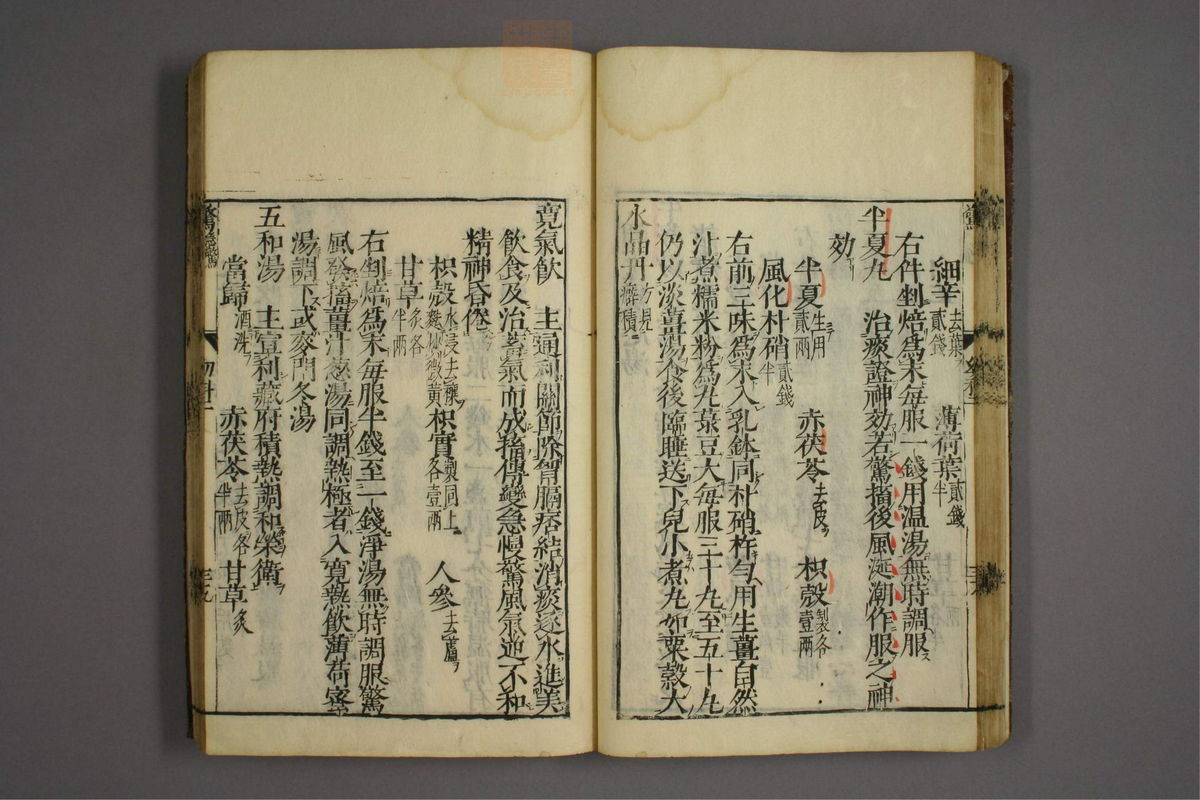 細辛去葉貳錢 薄荷葉貳錢半
右件剉焙爲末每服一錢用温湯無時調服
半夏丸 治痰證神効若驚搐後風涎潮作服之神
効
半夏生用貳兩 赤茯苓去皮 枳殼製各壹兩
風化朴硝貳錢半
右前三味爲末入乳鉢同朴硝杵勻用生薑自然
汁煮糯米粉爲丸菉豆大每服三十丸至五十丸
仍以淡薑湯食後臨睡送下兒小煮丸如粟穀大
水晶丹方見癖積
寛氣飲 主通利關節除胷膈痞結消痰逐水進美
飲食及治蓄氣而成搐傳變急慢驚風氣逆不和
精神昏倦
枳殼水浸去穰麩炒微黄 枳實製同上各壹兩 人參去蘆
甘草炙各半兩
右剉焙爲末每服半錢至一錢淨湯無時調服驚
風發搐薑汁葱湯同調熱極者入寛熱飲薄荷蜜
湯調下或麥門冬湯
五和湯 主宣利藏府積熱調和榮衛
當歸酒洗 赤茯苓去皮各半兩 甘草炙